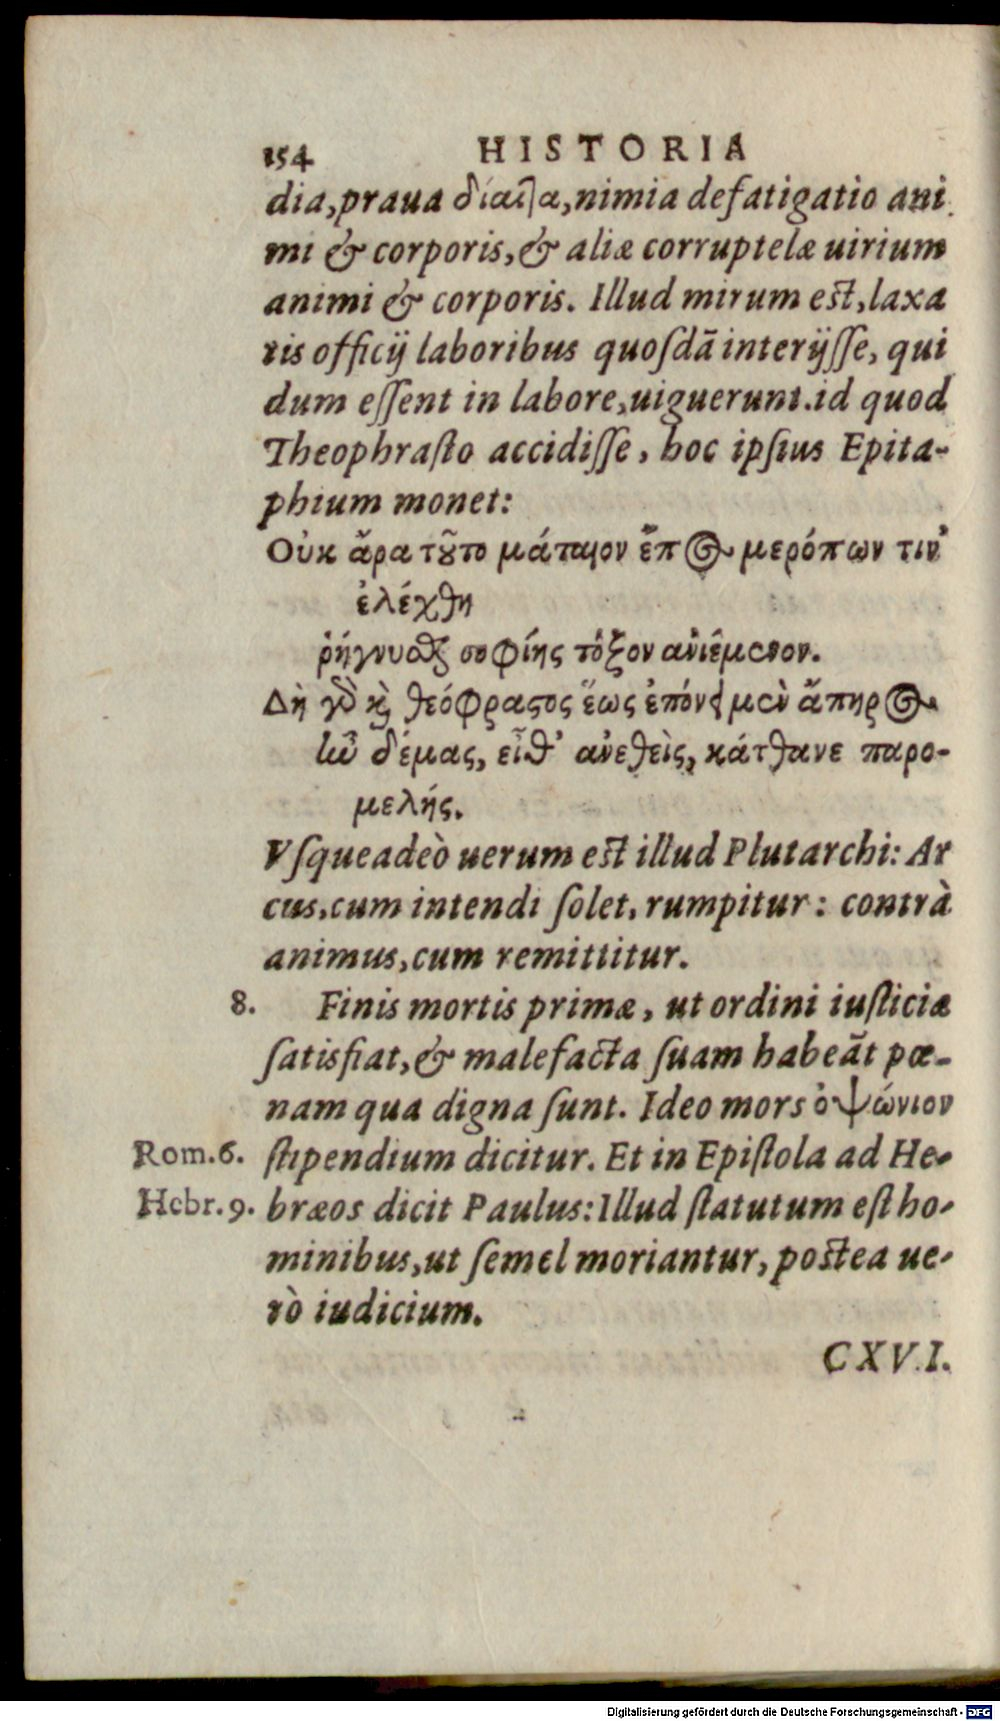 154 HISTORIA
dia, praua δίαιτα, nimia defatigatio ani
mi & corporis, & aliæ corruptelæ uirium
animi & corporis. Illud mirum est, laxa
tis officij laboribus quoſdã interijſſe, qui
dum eſſent in labore, uiguerunt. id quod
Theophraſto accidiſſe, hoc ipſius Epita-
phium monet:
Οὐκ ἄρα τοῦτο μάταιον ἔπος μερόπων τιν᾽
ἐλέχθη
ῥήγνυσθαι σοφίης τόξον ἀνιέμενον.
Δὴ γὰρ καὶ θεόφραστος ἕως ἐπόνει μὲν ἄπηρος
ἦν δέμας, εἶθ᾽ ἀνεθεὶς, κάτθανε παρο-
μελής.
Vſqueadeò uerum est illud Plutarchi: Ar
cus, cum intendi ſolet, rumpitur: contrà
animus, cum remittitur.
8. Finis mortis primæ, ut ordini iuſticiæ
ſatisfiat, & malefacta ſuam habeãt pœ-
nam qua digna ſunt. Ideo mors ὀψώνιον
Rom. 6. ſtipendium dicitur. Et in Epiſtola ad He-
Hebr. 9. bræos dicit Paulus: Illud ſtatutum eſt ho-
minibus, ut ſemel moriantur, postea ue-
rò iudicium.
CXVI.
Digitalisierung gefördert durch die Deutsche Forschungsgemeinschaft - DFG